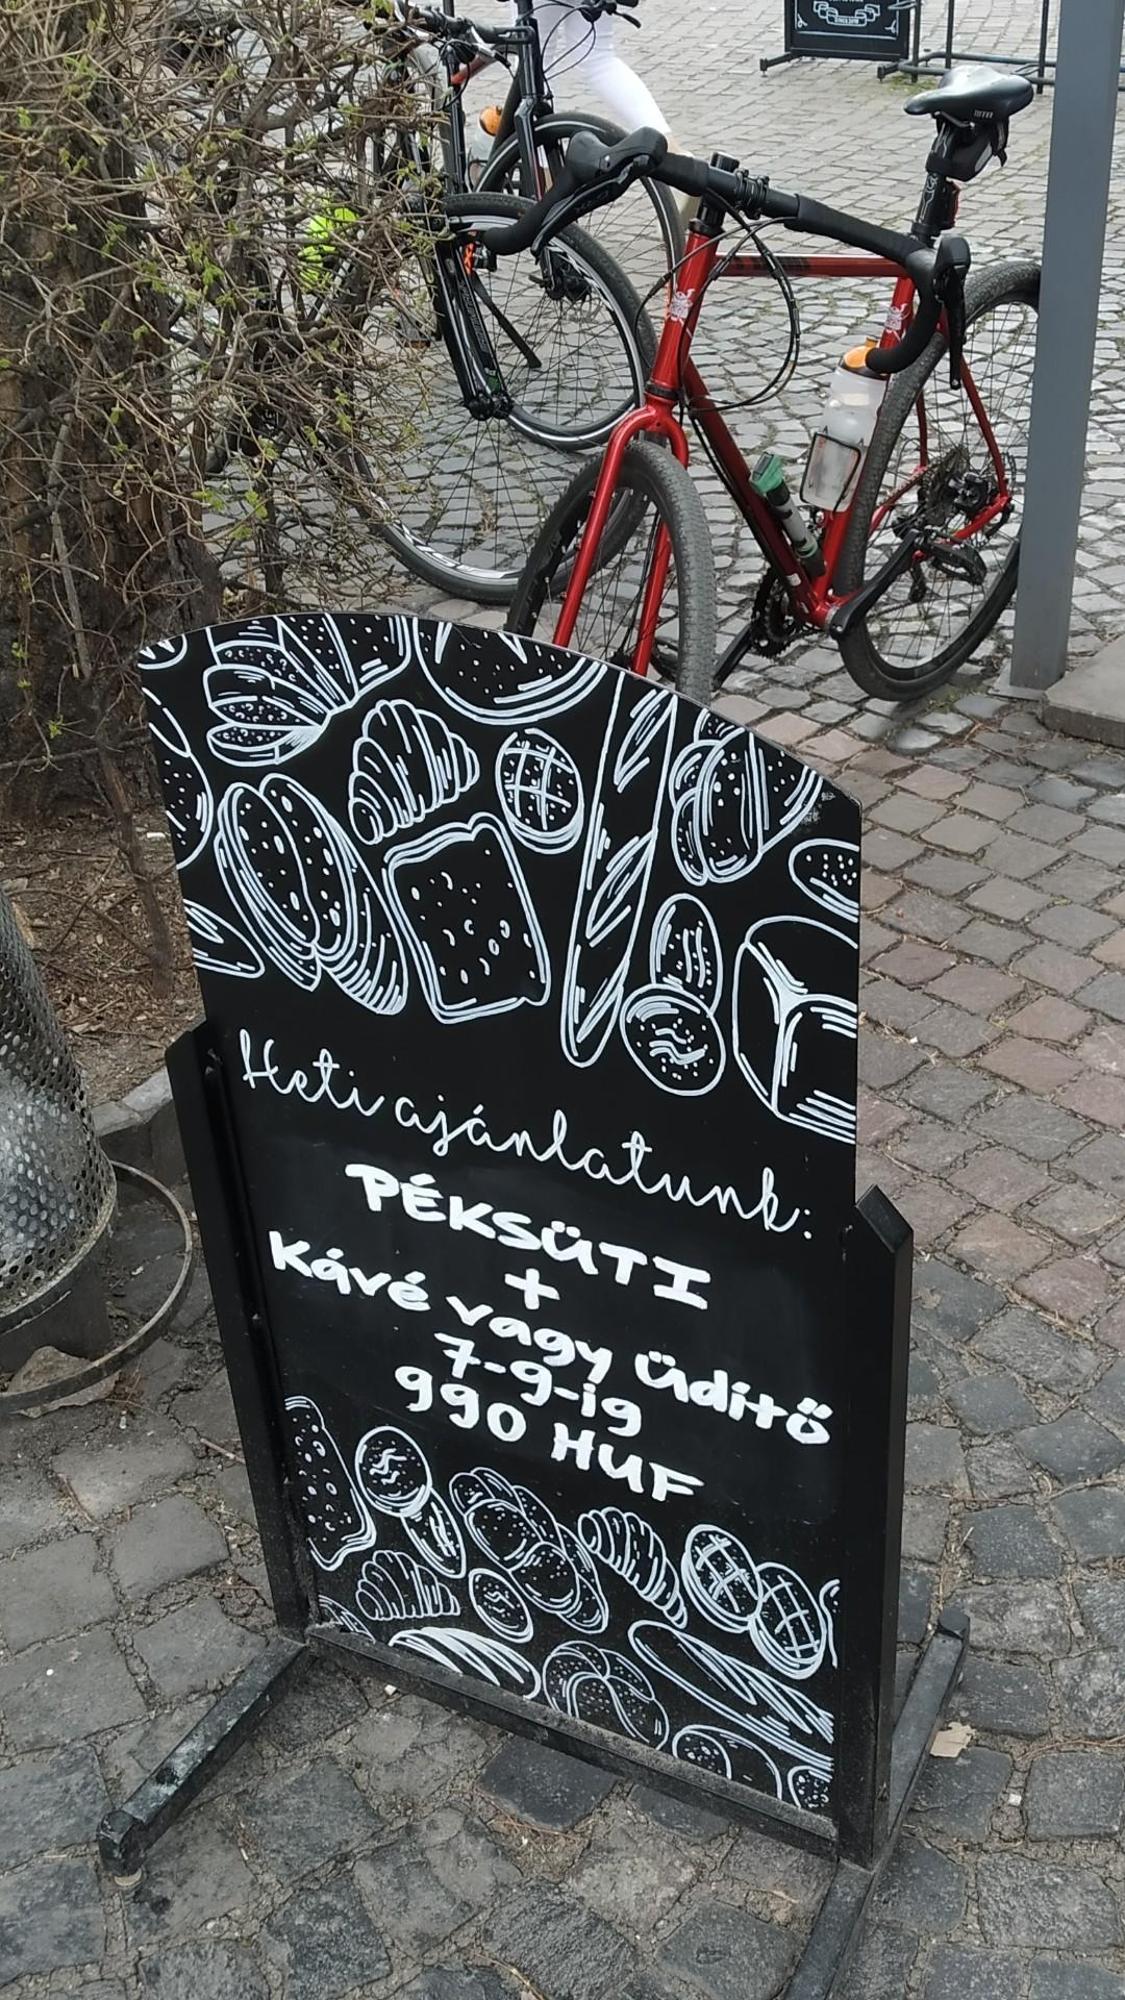 Heti ajánlatunk:
PÉKSÜTI
+
Kávé vagy üdítő
7-9-ig
990 HUF